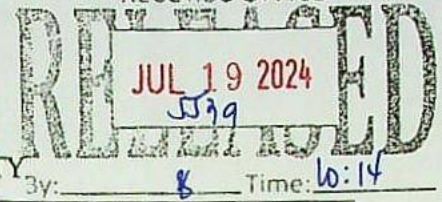 RELEASED
JUL 19 2024
Y By: Time: 10:14